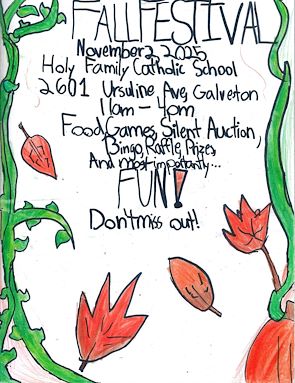 FALL FESTIVAL
November 2, 2025
Holy Family Catholic School
2601 Ursuline Ave, Galveton
11am - 4pm
Food, Games, Silent Auction,
Bingo, Raffle, Prizes,
And most importantly...
FUN!
Don't miss out!